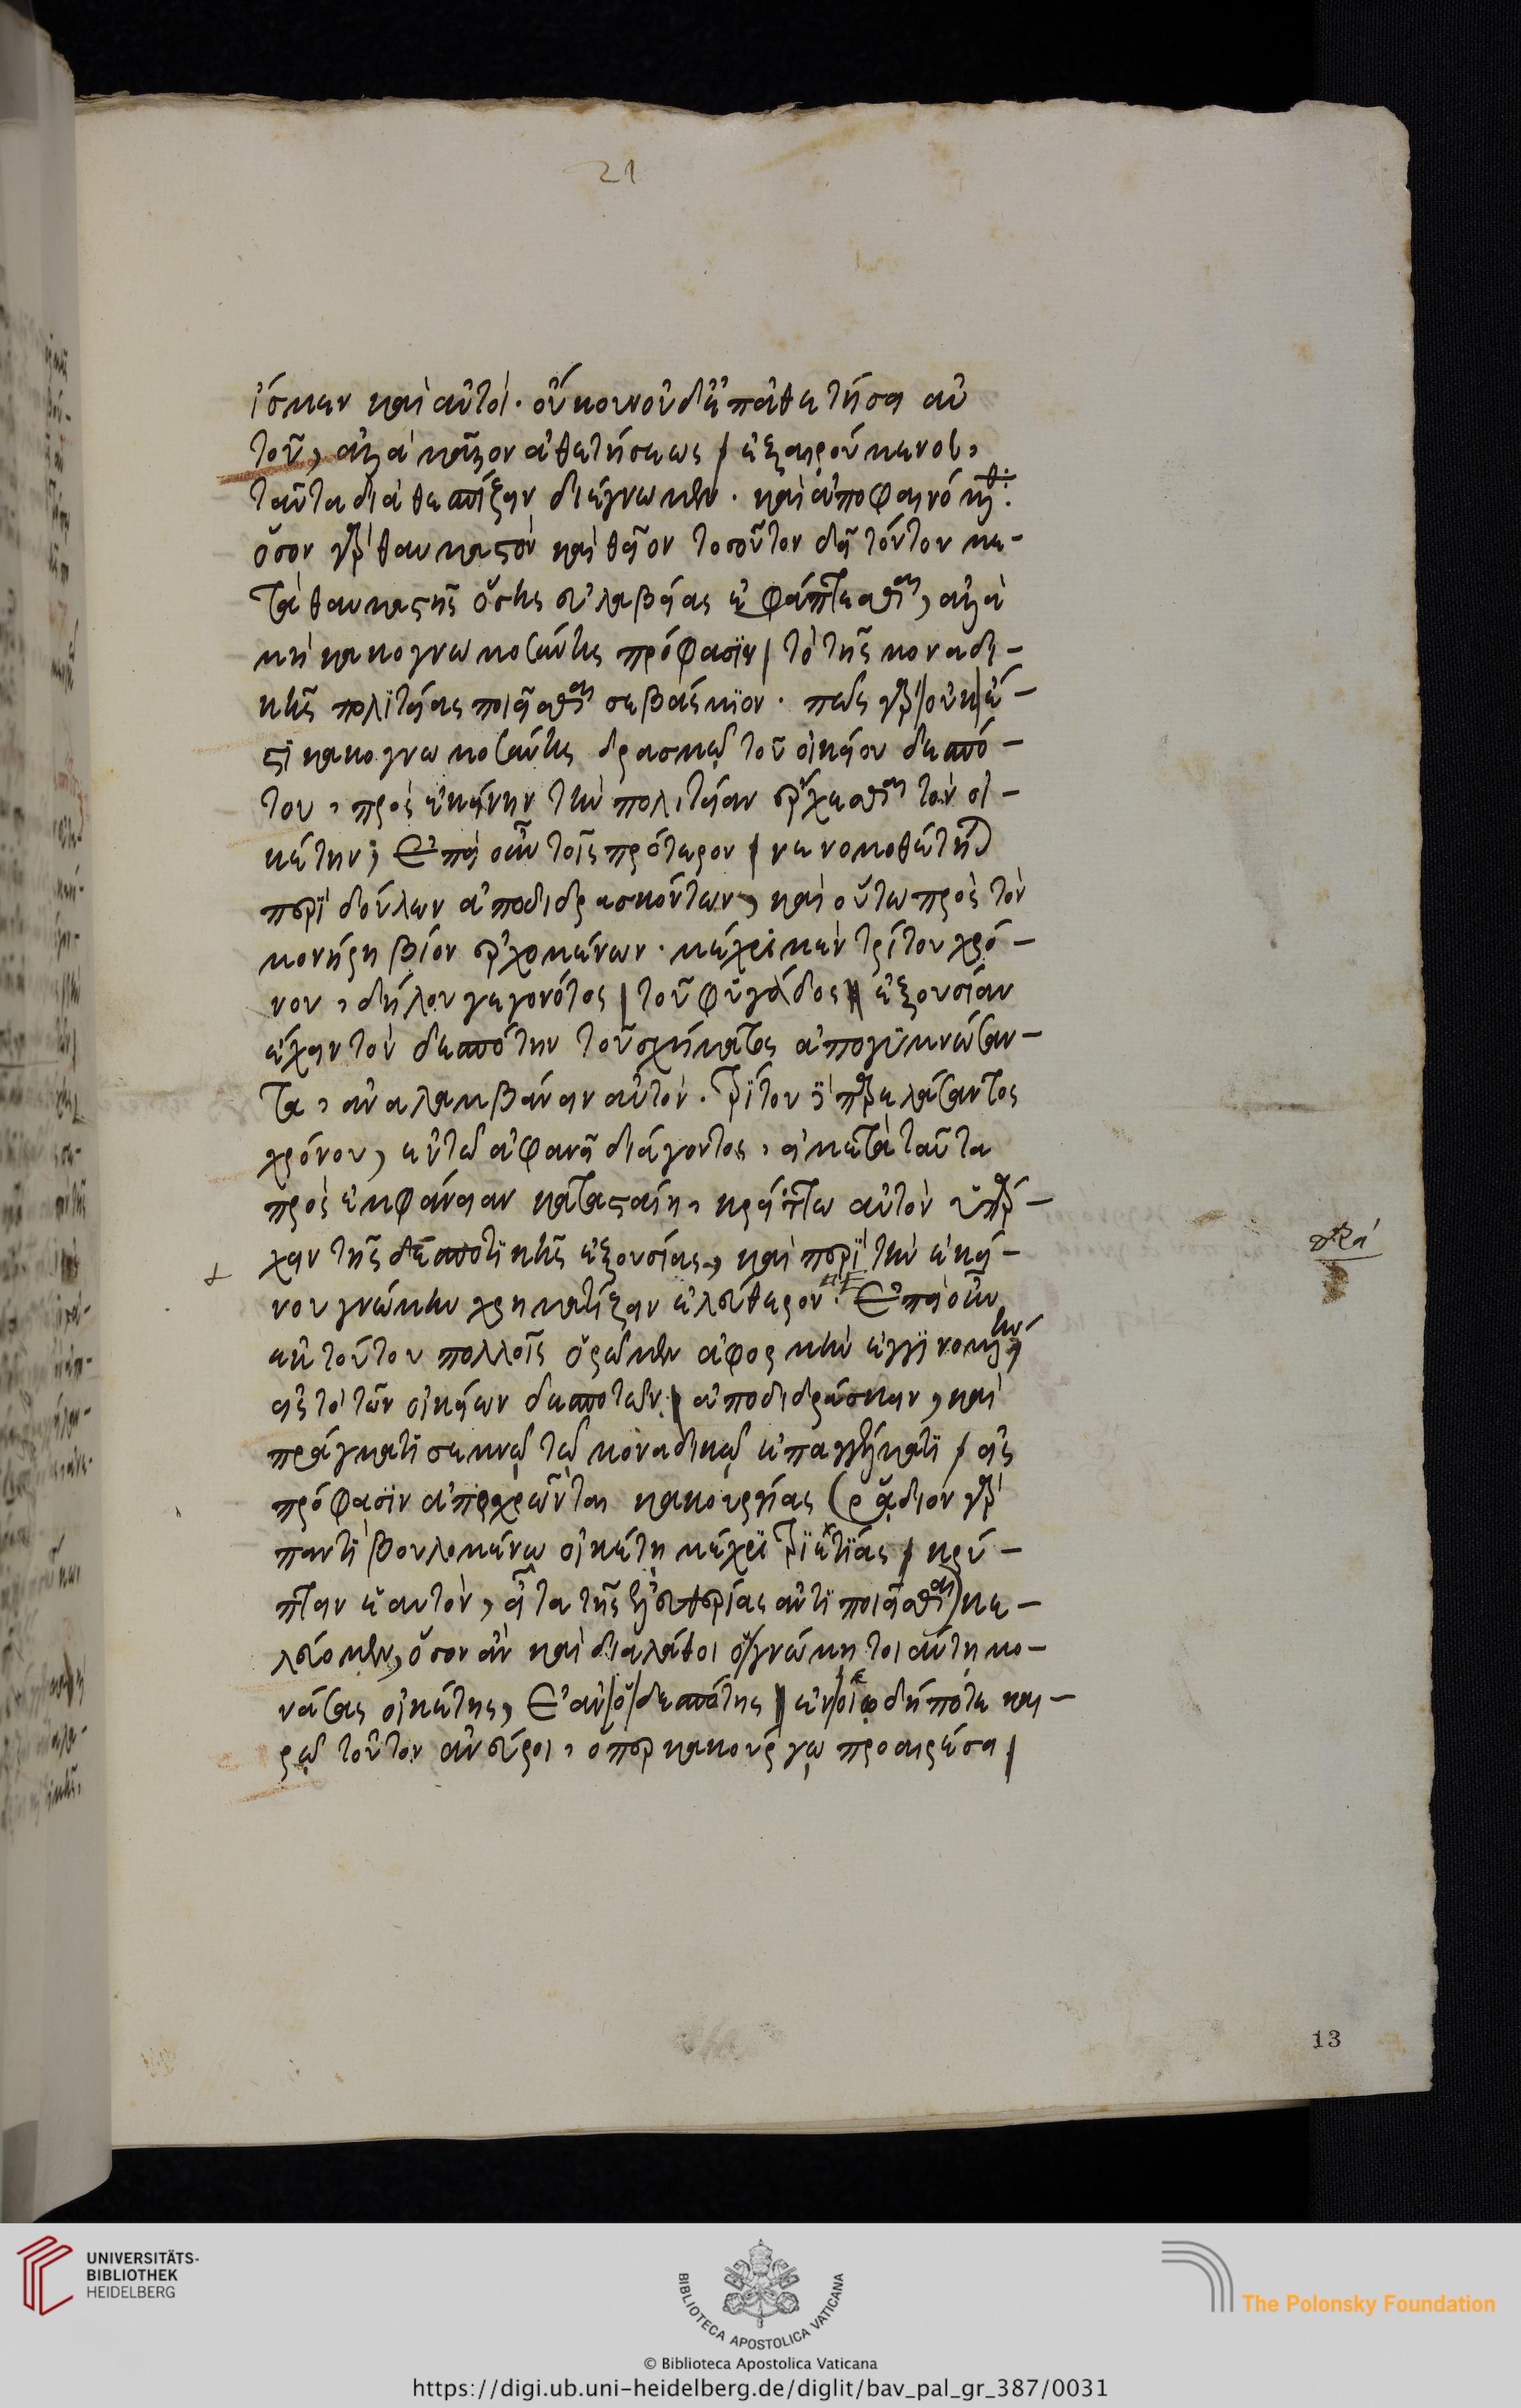 21
ἴσμεν καὶ αὐτοί. οὔκουν οὐδ' ἐπ' ἀθετήσει αὐ
τοῦ, ἀλλὰ μᾶλλον ἀθετήσεως ἐξαιρούμενοι,
ταῦτα διαθεσπίζειν διέγνωμεν. καὶ ἀποφαινόμεθα:
ὅσον γὰρ θαυμαστὸν καὶ θεῖον τοσοῦτον δεῖ τούτου με-
τὰ θαυμαστῆς ὅσης εὐλαβείας ἐφάπτεσθαι, ἀλλὰ
μὴ κακογνωμοσύνης πρόφασϊν τὸ τῆς μοναδι-
κῆς πολϊτείας ποιεῖσθαι σεβάσμϊον. πῶς γὰρ οὐκ ἔ-
στϊ κακογνωμοσύνης δρασμῷ τοῦ οἰκείου δεσπό-
του, πρὸς ἐκείνην τὴν πολιτείαν ἔρχεσθαι τὸν οἰ-
κέτην; Ἐπεὶ οὖν τοῖς πρότερον νενομοθέτηται
περὶ δούλων ἀποδιδρασκόντων, καὶ οὕτω πρὸς τὸν
μονήρη βίον ἐρχομένων. μέχρι μὲν τρίτου χρό-
νου, δήλου γεγονότος τοῦ φυγάδος ἐξουσίαν
ἔχειν τὸν δεσπότην τοῦ σχήματος ἀπογυμνώσαν-
τα, ἀναλαμβάνειν αὐτόν. τρίτου δὲ παρελάσαντος
χρόνου, ἐν τῷ ἀφανεῖ διάγοντος, εἰ μετὰ ταῦτα
πρὸς ἐμφάνειαν κατασταίη, κρείττω αὐτὸν ὑπάρ-
χειν τῆς δεσποτϊκῆς ἐξουσίας, καὶ περὶ τὴν ἐκεί-
νου γνώμην χρηματίζειν ἐλεύθερον. Ἐπεὶ οὖν
ἐκ τούτου πολλοῖς ὁρῶμεν ἀφορμὴν ἐγγϊνομένην
εἰς τὸ τῶν οἰκείων δεσποτῶν ἀποδιδράσκειν, καὶ
πράγματϊ σεμνῷ τῷ μοναδικῷ ἐπαγγέλματϊ εἰς
πρόφασϊν ἀποχρῶνται κακουργίας (ῥᾴδιον γὰρ
παντὶ βουλομένῳ οἰκέτῃ μέχρϊ τρϊετϊάς κρύ-
πτειν ἑαυτὸν, εἶτα τῆς ἐλευθερίας ἀντϊποιεῖσθαι) κε-
λεύομεν, ὅσον ἂν καὶ διαλάθοι ὁ γνώμῃ τοιαύτῃ μο-
νάσας οἰκέτης, Ἐὰν ὁ δεσπότης ἐν οἵῳ δήποτε και-
ρῷ τοῦτον ἀνεύροι, ὅπερ κακούργῳ προαιρέσει
13
UNIVERSITÄTS-
BIBLIOTHEK
HEIDELBERG
BIBLIOTECA APOSTOLICA VATICANA
The Polonsky Foundation
© Biblioteca Apostolica Vaticana
https://digi.ub.uni-heidelberg.de/diglit/bav_pal_gr_387/0031